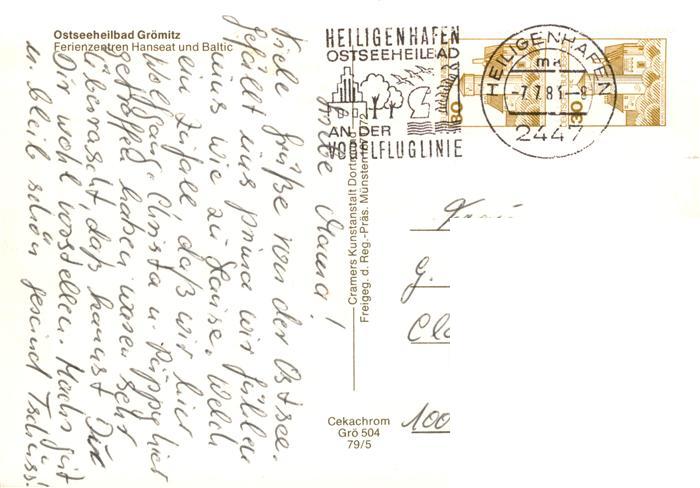 Ostseeheilbad Grömitz
Ferienzentren Hanseat und Baltic
Liebe Mama!
Viele Grüße von der Ostsee.
Gefällt uns prima wir fühlen
uns wie zu Hause. Welch
ein Zufall, daß wir hier
Wolfgang, Christa u. Püppi hier
getroffen haben waren sehr
überrascht, daß kannst Du
Dir wohl vorstellen. Machs gut
u. bleib schön gesund Tschüss!
Cramers Kunstanstalt Dortmund
Freigeg. d. Reg.-Präs. Münster 1672/72
Cekachrom
Grö 504
79/5
HEILIGENHAFEN
OSTSEEHEILBAD
AN DER
VOGELFLUGLINIE
HEILIGENHAFEN
mk
-7.7.81-9
2447
80
30
Frau
G.
Cl
100